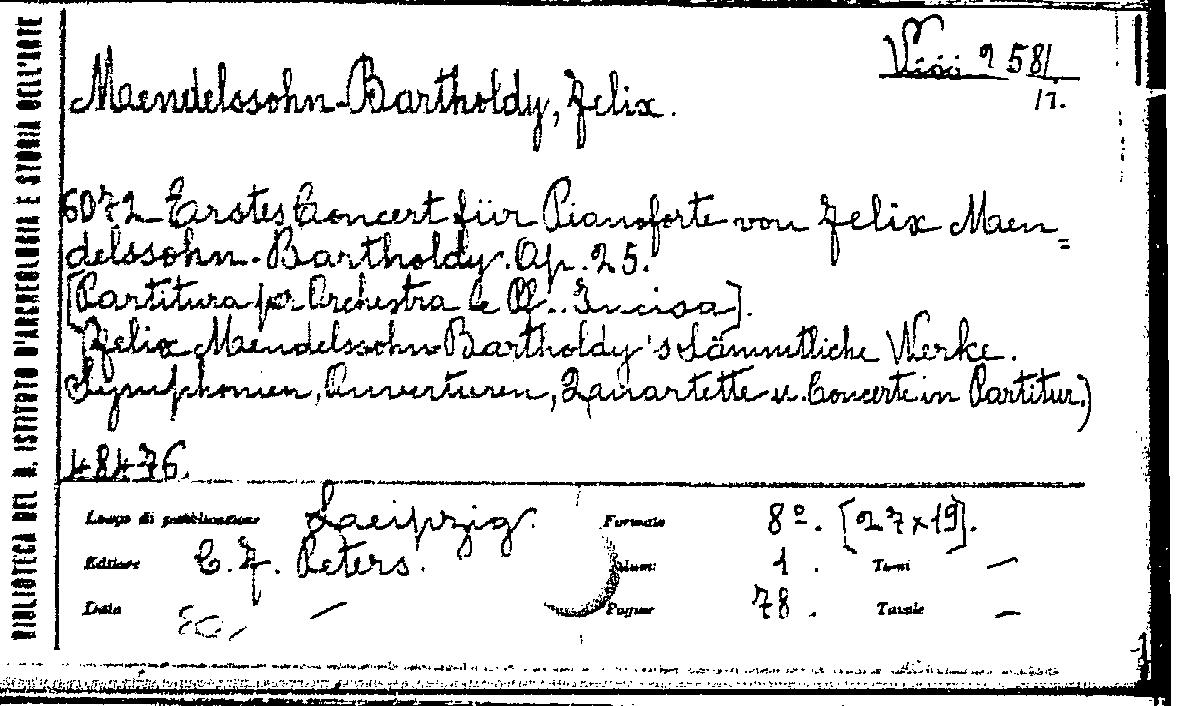 BIBLIOTECA DEL R. ISTITUTO D'ARCHEOLOGIA E STORIA DELL'ARTE
258/
17.
Mendelssohn-Bartholdy, Felix.
6072 Erstes Concert für Pianoforte von Felix Men=
delssohn-Bartholdy. Op. 25.
[Partitura per Orchestra e Pf.. Incisa].
(Felix Mendelssohn Bartholdy's Sämmtliche Werke.
Symphonien, Ouverturen, Quartette u. Concerte in Partitur.)
48476.
Luogo di pubblicazione Leipzig. Formato 8º. [27x19].
Editore C. F. Peters. Volumi 1. Tomi —
Data — Pagine 78. Tavole —